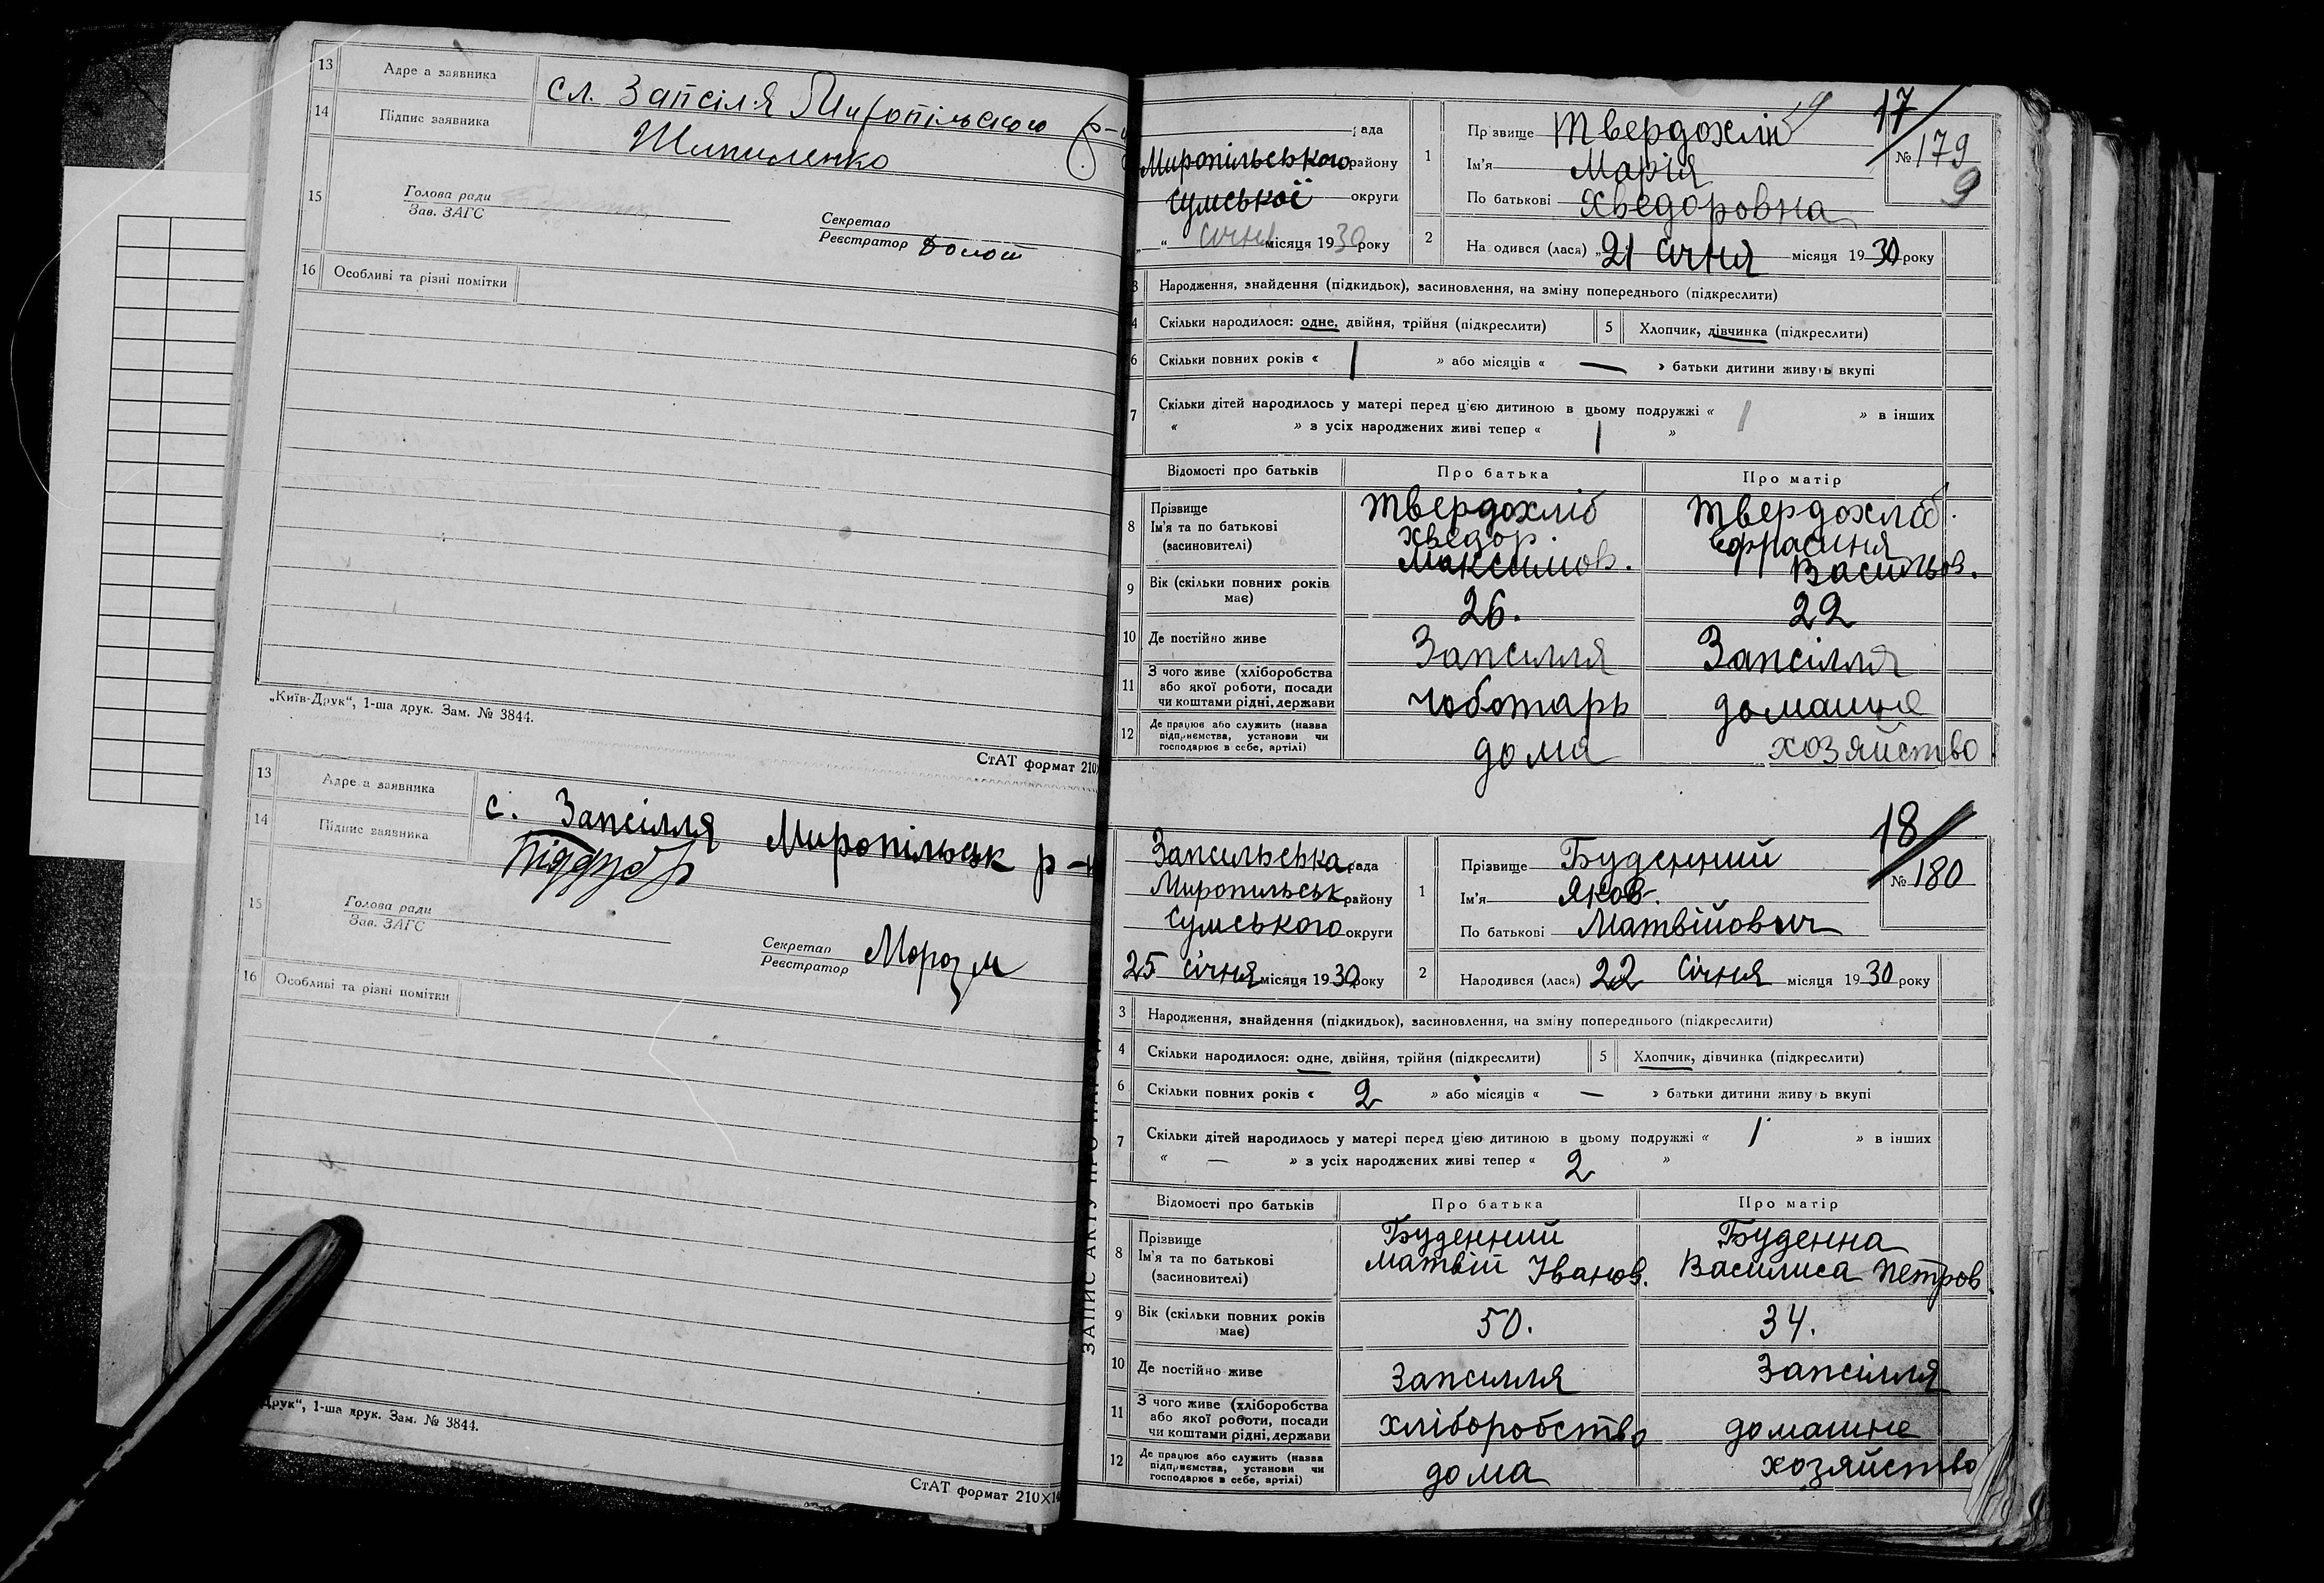 13 Адреса заявника сл. Запсілля Миропільского р-н
14 Підпис заявника
15 Голова ради
Зав. ЗАГС
Секретар
Реєстратор
16 Особливі та різні помітки
„Київ-Друк“, 1-ша друк. Зам. № 3844.
СтАТ формат 210
13 Адреса заявника с. Запсілля Миропільськ р-н
14 Підпис заявника Піддубр
15 Голова ради
Зав. ЗАГС
Секретар
Реєстратор Мороз М
16 Особливі та різні помітки
Друк“, 1-ша друк. Зам. № 3844.
СтАТ формат 210×14
17/
рада
Миропільського району
Сумської округи
„ “ січня місяця 1930 року
1 Прізвище Твердохліб
№ 179
9
Ім'я Марія
По батькові Хведоровна
2 Народився (лася) „21 січня місяця 1930 року
3 Народження, знайдення (підкидьок), засиновлення, на зміну попереднього (підкреслити)
4 Скільки народилося: одне, двійня, трійня (підкреслити) 5 Хлопчик, дівчинка (підкреслити)
6 Скільки повних років « 1 » або місяців « — » батьки дитини живуть вкупі
7 Скільки дітей народилось у матері перед цією дитиною в цьому подружжі « 1 » в інших
« » з усіх народжених живі тепер « 1 »
Відомості про батьків Про батька Про матір
8 Прізвище Твердохліб Твердохліб.
Ім'я та по батькові Хведор Єфрасиня
(засиновителі) Максимов. Васильов.
9 Вік (скільки повних років має) 26. 22
10 Де постійно живе Запсилля Запсілля
11 З чого живе (хліборобства або якої роботи, посади чи коштами рідні, держави чоботарь домашнє
12 Де працює або служить (назва підприємства, установи чи господарює в себе, артілі) дома хозяйство.
18/
Запсильська рада
Миропильськ району
Сумського округи
25 січня місяця 1930 року
1 Прізвище Буденний
№ 180
Ім'я Яков.
По батькові Матвійович
2 Народився (лася) 22 січня місяця 1930 року
3 Народження, знайдення (підкидьок), засиновлення, на зміну попереднього (підкреслити)
4 Скільки народилося: одне, двійня, трійня (підкреслити) 5 Хлопчик, дівчинка (підкреслити)
6 Скільки повних років « 2 » або місяців « — » батьки дитини живуть вкупі
7 Скільки дітей народилось у матері перед цією дитиною в цьому подружжі « 1 » в інших
« — » з усіх народжених живі тепер « 2 »
Відомості про батьків Про батька Про матір
8 Прізвище Буденний Буденна
Ім'я та по батькові Матвій Іванов. Василиса Петров
(засиновителі)
9 Вік (скільки повних років має) 50. 34.
10 Де постійно живе Запсилля Запсілля
11 З чого живе (хліборобства або якої роботи, посади чи коштами рідні, держави хліборобство домашнє
12 Де працює або служить (назва підприємства, установи чи господарює в себе, артілі) дома хозяйство